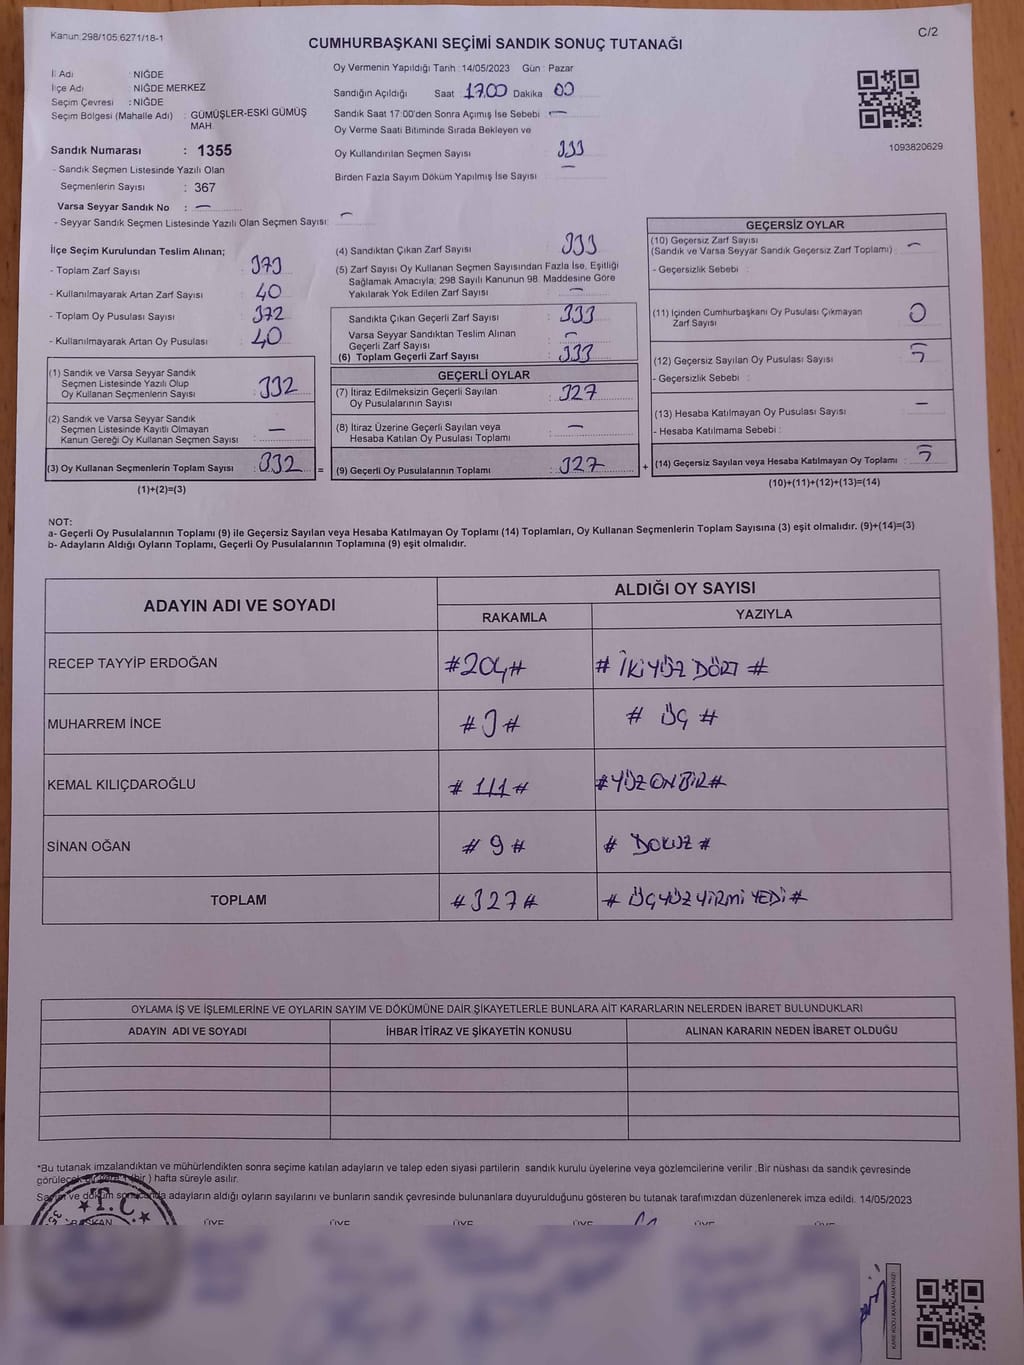 Kanun:298/105,6271/18-1
C/2
CUMHURBAŞKANI SEÇİMİ SANDIK SONUÇ TUTANAĞI
İl Adı : NİĞDE
İlçe Adı : NİĞDE MERKEZ
Seçim Çevresi : NİĞDE
Seçim Bölgesi (Mahalle Adı) : GÜMÜŞLER-ESKİ GÜMÜŞ MAH.
Sandık Numarası : 1355
- Sandık Seçmen Listesinde Yazılı Olan
Seçmenlerin Sayısı : 367
Varsa Seyyar Sandık No : —
- Seyyar Sandık Seçmen Listesinde Yazılı Olan Seçmen Sayısı: —
Oy Vermenin Yapıldığı Tarih :14/05/2023 Gün : Pazar
Sandığın Açıldığı Saat 17.00 Dakika 00
Sandık Saat 17:00'den Sonra Açımış İse Sebebi —
Oy Verme Saati Bitiminde Sırada Bekleyen ve
Oy Kullandırılan Seçmen Sayısı 333
Birden Fazla Sayım Döküm Yapılmış İse Sayısı —
1093820629
İlçe Seçim Kurulundan Teslim Alınan;
- Toplam Zarf Sayısı : 373
- Kullanılmayarak Artan Zarf Sayısı : 40
- Toplam Oy Pusulası Sayısı : 372
- Kullanılmayarak Artan Oy Pusulası : 40
(1) Sandık ve Varsa Seyyar Sandık
Seçmen Listesinde Yazılı Olup
Oy Kullanan Seçmenlerin Sayısı : 332
(2) Sandık ve Varsa Seyyar Sandık
Seçmen Listesinde Kayıtlı Olmayan
Kanun Gereği Oy Kullanan Seçmen Sayısı : —
(3) Oy Kullanan Seçmenlerin Toplam Sayısı : 332 =
(1)+(2)=(3)
(4) Sandıktan Çıkan Zarf Sayısı : 333
(5) Zarf Sayısı Oy Kullanan Seçmen Sayısından Fazla İse, Eşitliği
Sağlamak Amacıyla; 298 Sayılı Kanunun 98. Maddesine Göre
Yakılarak Yok Edilen Zarf Sayısı : —
Sandıkta Çıkan Geçerli Zarf Sayısı : 333
Varsa Seyyar Sandıktan Teslim Alınan
Geçerli Zarf Sayısı : —
(6) Toplam Geçerli Zarf Sayısı : 333
GEÇERLİ OYLAR
(7) İtiraz Edilmeksizin Geçerli Sayılan
Oy Pusulalarının Sayısı : 327
(8) İtiraz Üzerine Geçerli Sayılan veya
Hesaba Katılan Oy Pusulası Toplamı : —
(9) Geçerli Oy Pusulalarının Toplamı : 327 +
GEÇERSİZ OYLAR
(10) Geçersiz Zarf Sayısı
(Sandık ve Varsa Seyyar Sandık Geçersiz Zarf Toplamı) : —
- Geçersizlik Sebebi :
(11) İçinden Cumhurbaşkanı Oy Pusulası Çıkmayan
Zarf Sayısı : 0
(12) Geçersiz Sayılan Oy Pusulası Sayısı : 5
- Geçersizlik Sebebi :
(13) Hesaba Katılmayan Oy Pusulası Sayısı : —
- Hesaba Katılmama Sebebi :
(14) Geçersiz Sayılan veya Hesaba Katılmayan Oy Toplamı : 5
(10)+(11)+(12)+(13)=(14)
NOT:
a- Geçerli Oy Pusulalarının Toplamı (9) ile Geçersiz Sayılan veya Hesaba Katılmayan Oy Toplamı (14) Toplamları, Oy Kullanan Seçmenlerin Toplam Sayısına (3) eşit olmalıdır. (9)+(14)=(3)
b- Adayların Aldığı Oyların Toplamı, Geçerli Oy Pusulalarının Toplamına (9) eşit olmalıdır.
ADAYIN ADI VE SOYADI
ALDIĞI OY SAYISI
RAKAMLA
YAZIYLA
RECEP TAYYİP ERDOĞAN #204# # İKİYÜZ DÖRT #
MUHARREM İNCE #3# # ÜÇ #
KEMAL KILIÇDAROĞLU # 111 # #YÜZ ONBİR#
SİNAN OĞAN # 9 # # DOKUZ #
TOPLAM #327# # ÜÇYÜZ YİRMİ YEDİ #
OYLAMA İŞ VE İŞLEMLERİNE VE OYLARIN SAYIM VE DÖKÜMÜNE DAİR ŞİKAYETLERLE BUNLARA AİT KARARLARIN NELERDEN İBARET BULUNDUKLARI
ADAYIN ADI VE SOYADI
İHBAR İTİRAZ VE ŞİKAYETİN KONUSU
ALINAN KARARIN NEDEN İBARET OLDUĞU
*Bu tutanak imzalandıktan ve mühürlendikten sonra seçime katılan adayların ve talep eden siyasi partilerin sandık kurulu üyelerine veya gözlemcilerine verilir .Bir nüshası da sandık çevresinde
görülecek bir yere 1 (bir ) hafta süreyle asılır.
Sayım ve döküm sonucunda adayların aldığı oyların sayılarını ve bunların sandık çevresinde bulunanlara duyurulduğunu gösteren bu tutanak tarafımızdan düzenlenerek imza edildi. 14/05/2023
T.C.
BAŞKAN ÜYE ÜYE ÜYE ÜYE ÜYE ÜYE